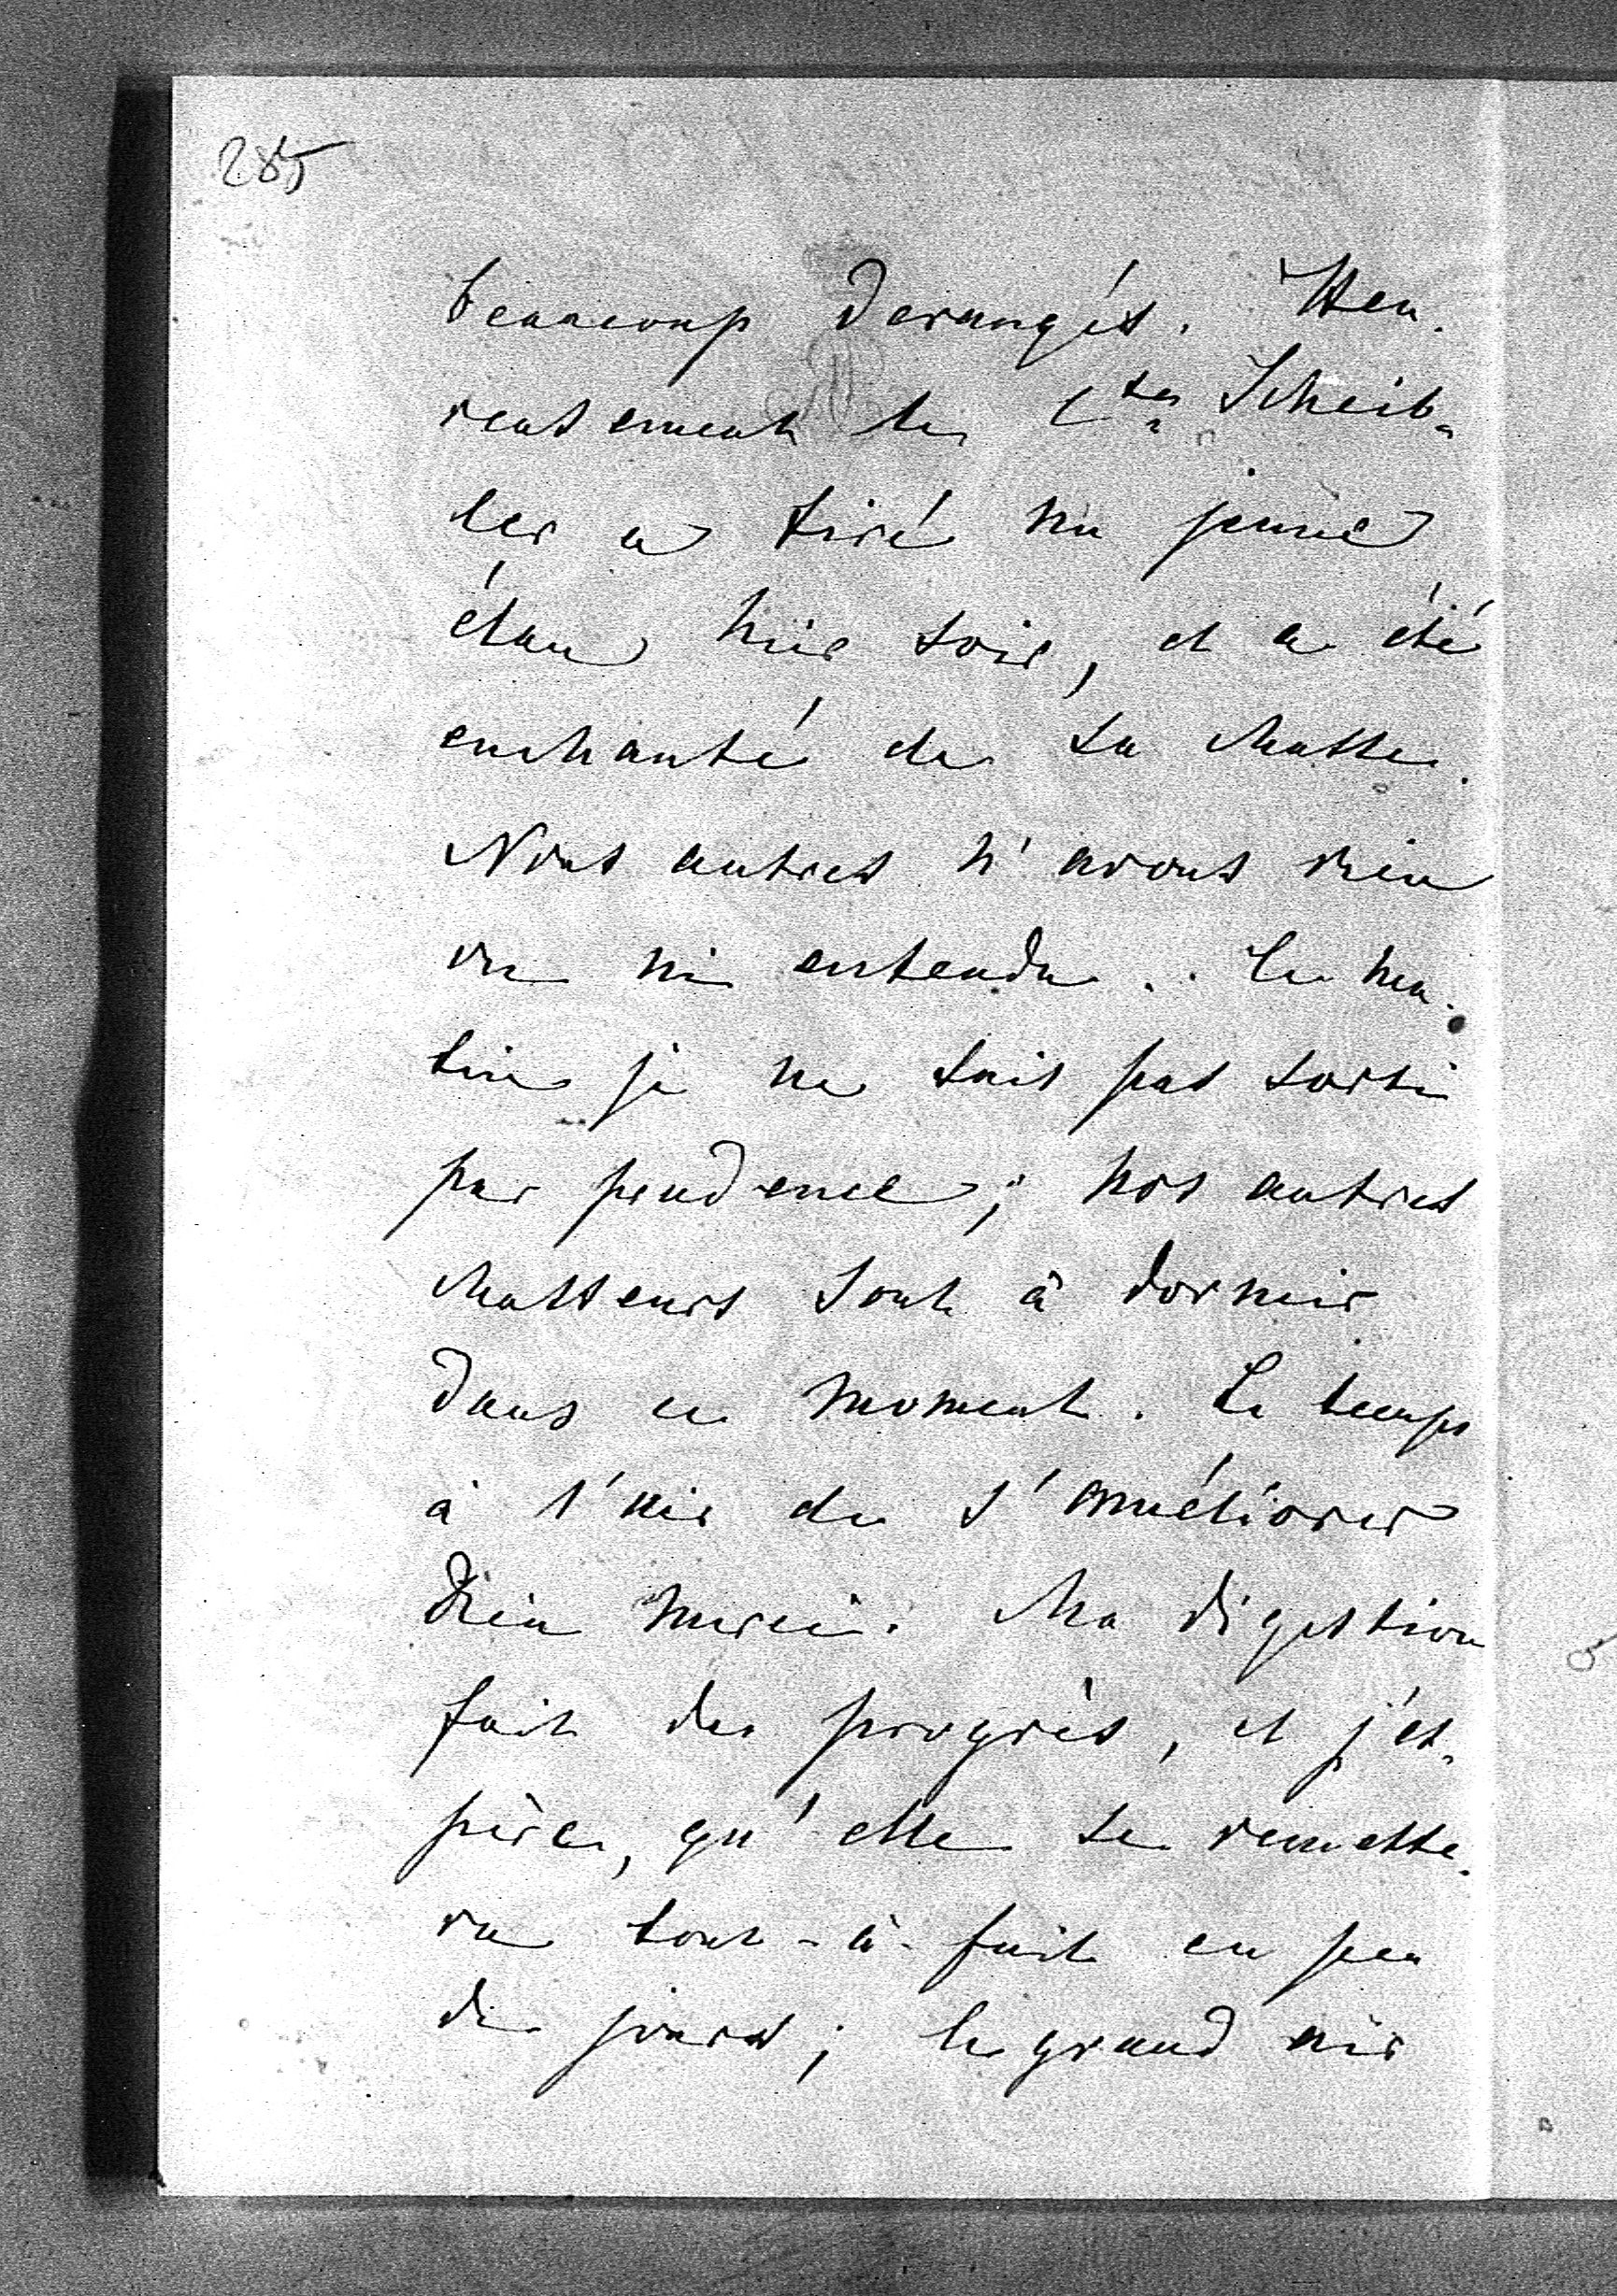 285
beaucoup derangés. Heu-
reusement le Cte Scheib-
ler a tiré un jeune
élan hier soir, et a été
enchanté de sa chasse.
Nous autres n'avons rien
vu ni entendu. Ce ma-
tin je ne suis pas sorti
par prudence; nos autres
chasseurs sont à dormir
dans ce moment. Le temps
à l'air de s'améliorer
Dieu merci. Ma digestion
fait des progrès, et j'es-
père, qu'elle se remette-
ra tout-à-fait en peu
de jours; le grand air